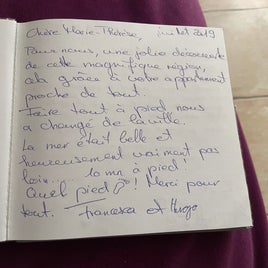 Chère Marie-Thérèse, juillet 2019
Pour nous, une jolie découverte
de cette magnifique région,
cela grâce à votre appartement
proche de tout.
Faire tout à pied nous
a changé de la ville.
La mer était belle et
heureusement vraiment pas
loin.... 10 mn à pied!
Quel pied! Merci pour
tout. Francesca et Hugo